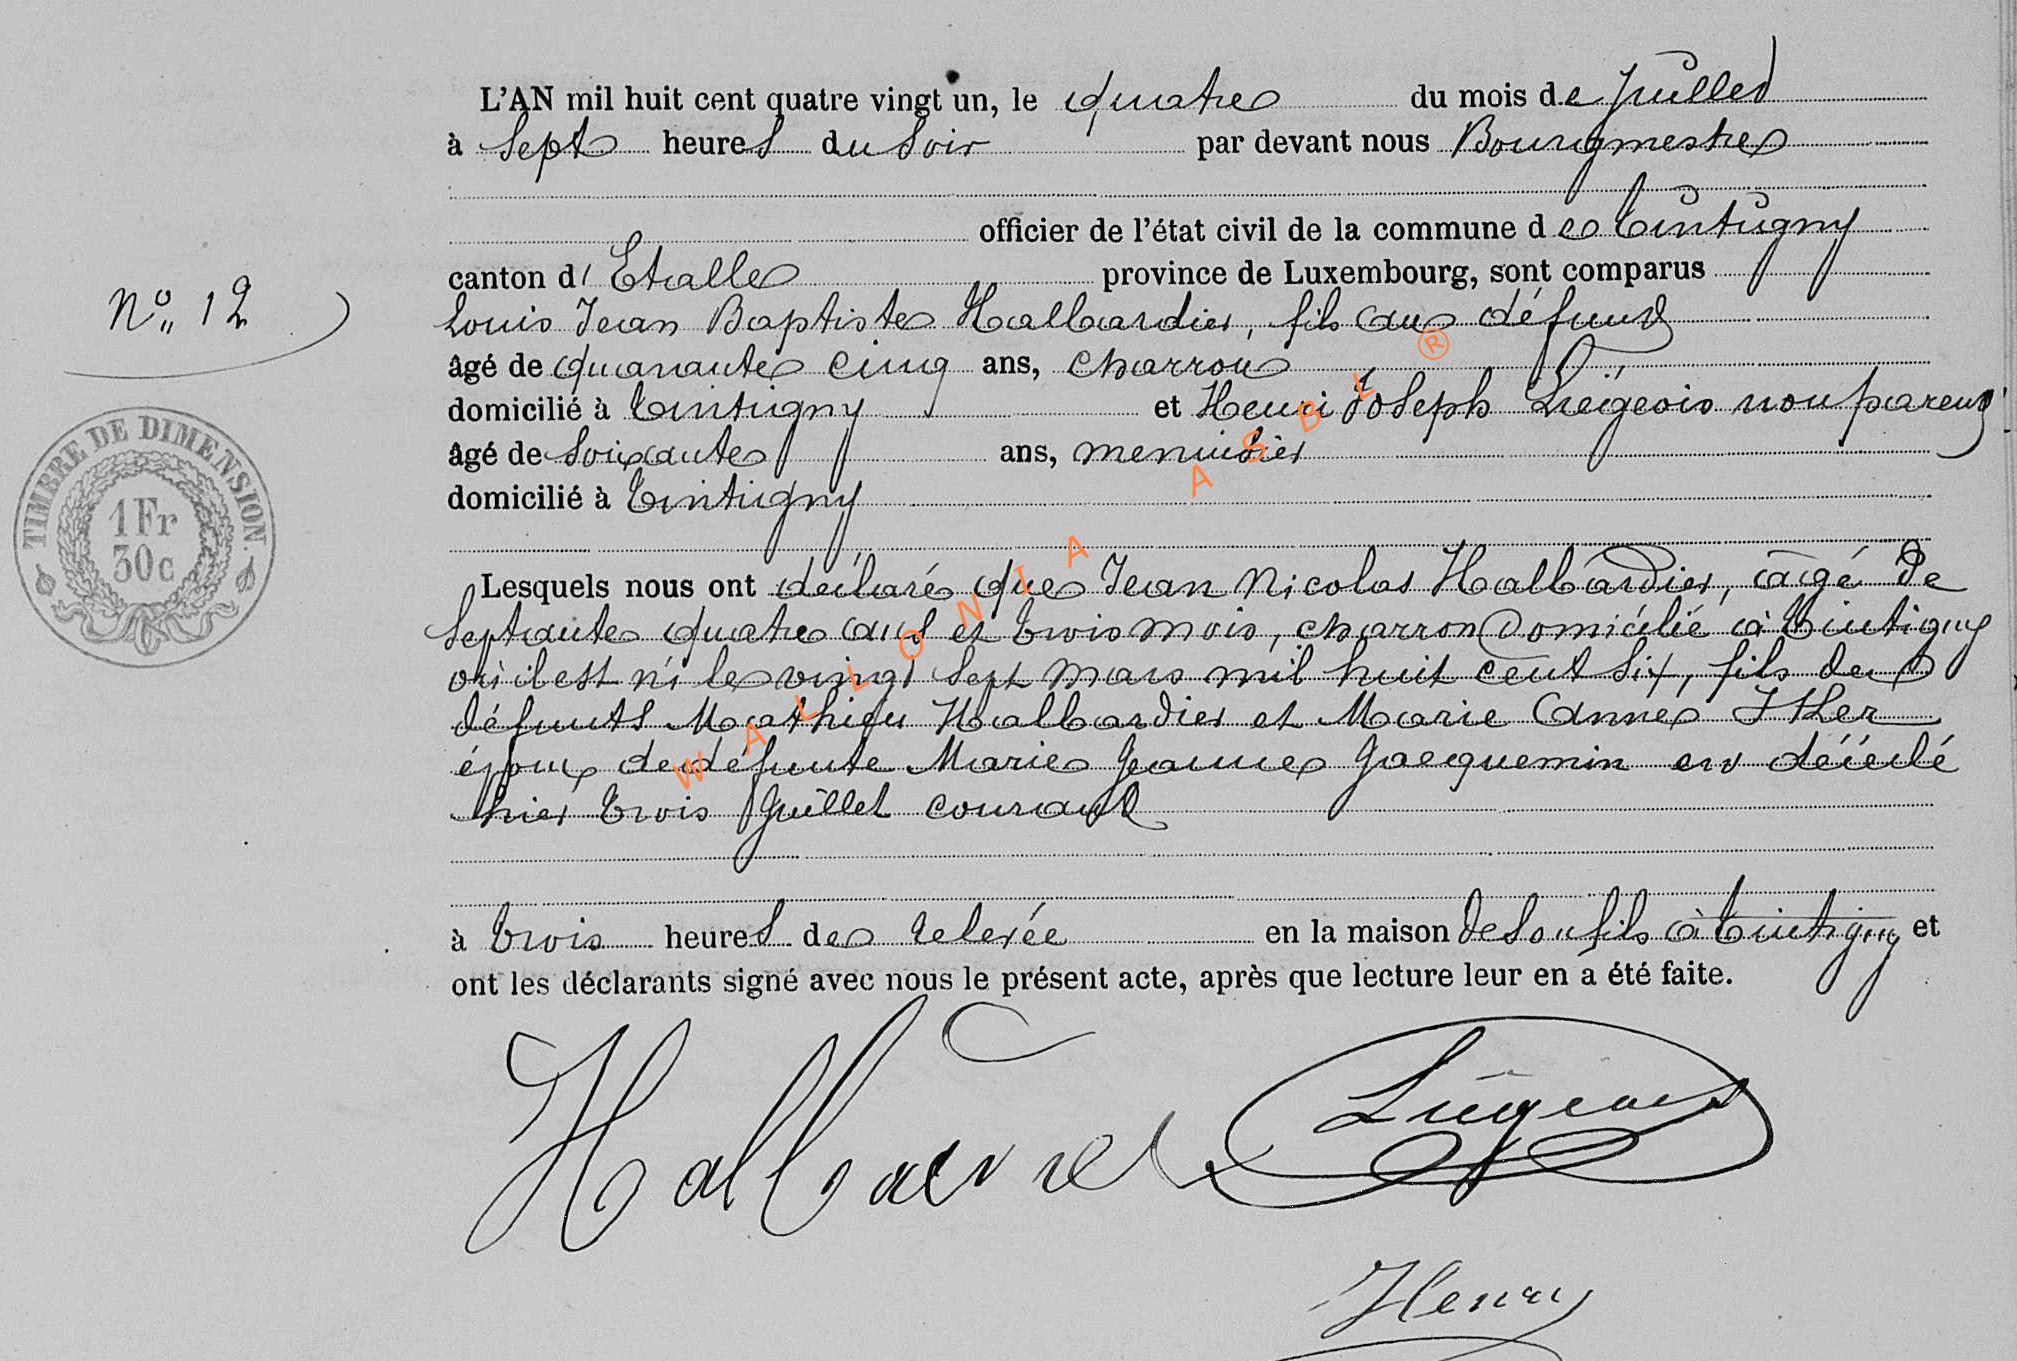 L'AN mil huit cent quatre vingt un, le quatre du mois de Juillet
à Sept heures du Soir par devant nous Bourgmestre
officier de l'état civil de la commune de Tintigny
canton d'Etalle province de Luxembourg, sont comparus
N° 12
Louis Jean Baptiste Halbardier, fils au défunt
âgé de quarante cinq ans, charron
domicilié à Tintigny et Henri Joseph Liégeois non parent
âgé de Soixante ans, menuisier
domicilié à Tintigny
TIMBRE DE DIMENSION.
1 Fr
30c
Lesquels nous ont déclaré que Jean Nicolas Halbardier, âgé de
Septante quatre ans et trois mois, charron domicilié à Tintigny
où il est né le vingt Sept Mars mil huit cent Six, fils de
défunts Mathieu Halbardier et Marie Anne
époux de défunte Marie Jeanne Jacquemin est décédé
hier trois Juillet courant
à trois heures de relevée en la maison de Son fils à Tintigny et
ont les déclarants signé avec nous le présent acte, après que lecture leur en a été faite.
Liégeois
Henry
WALLONIA ASBL ®